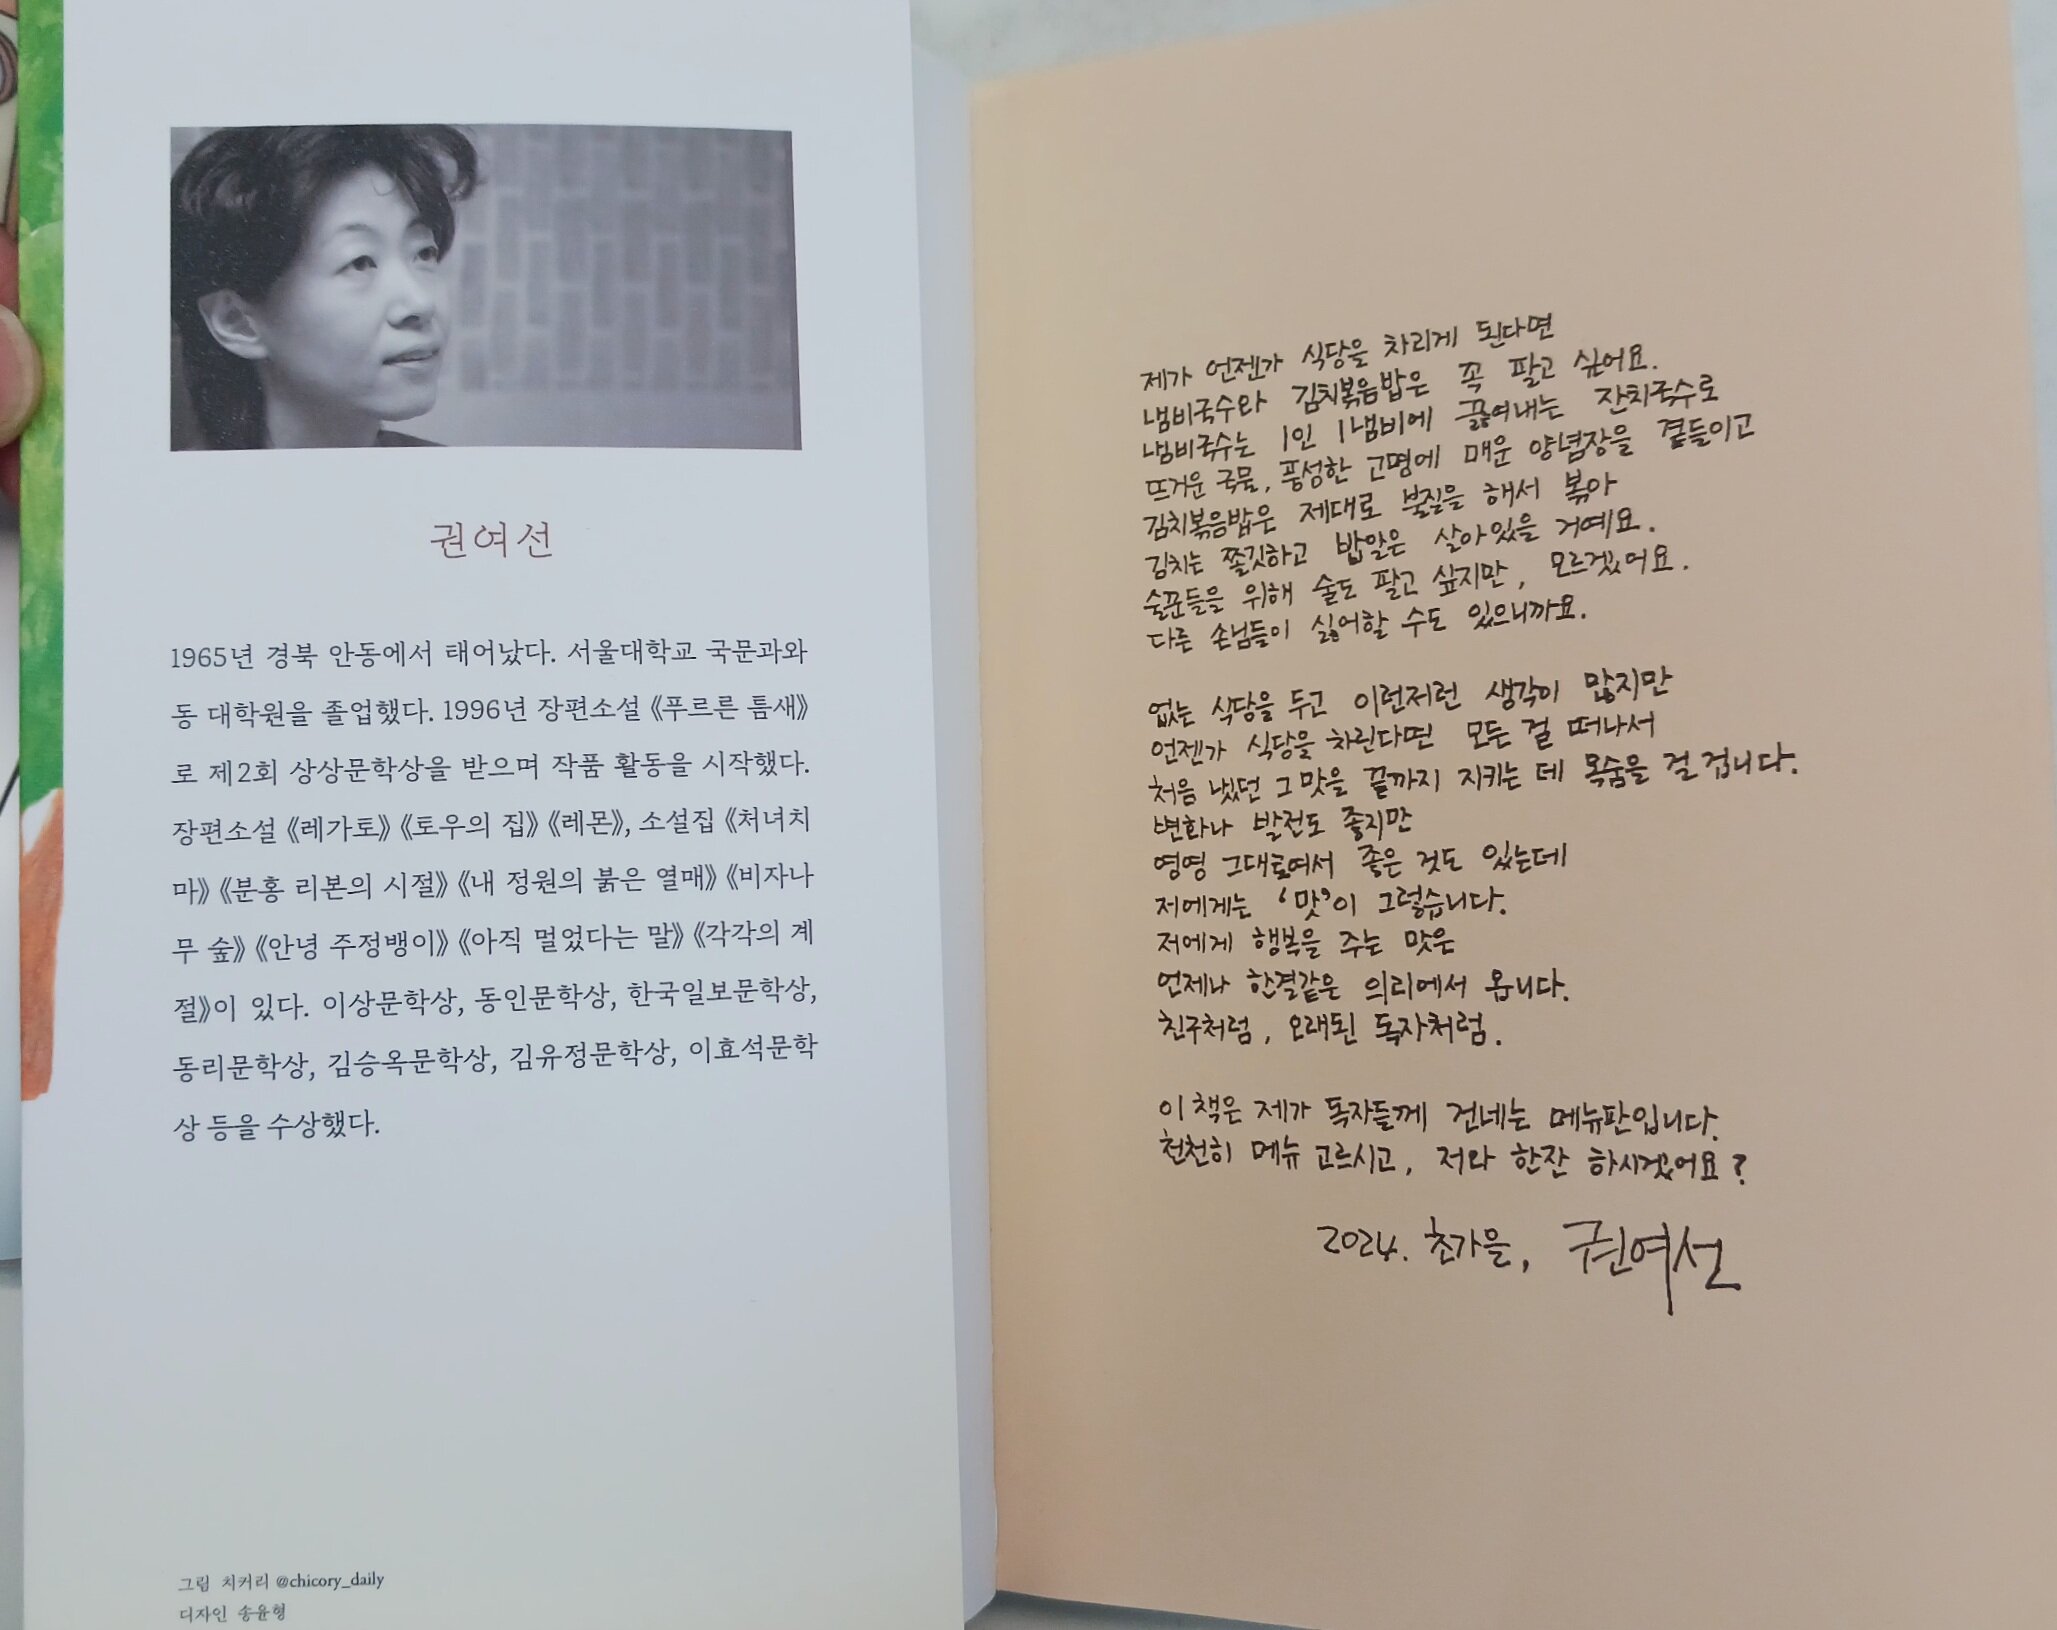 권여선
1965년 경북 안동에서 태어났다. 서울대학교 국문과와
동 대학원을 졸업했다. 1996년 장편소설 《푸르른 틈새》
로 제2회 상상문학상을 받으며 작품 활동을 시작했다.
장편소설 《레가토》 《토우의 집》 《레몬》, 소설집 《처녀치
마》 《분홍 리본의 시절》 《내 정원의 붉은 열매》 《비자나
무 숲》 《안녕 주정뱅이》 《아직 멀었다는 말》 《각각의 계
절》이 있다. 이상문학상, 동인문학상, 한국일보문학상,
동리문학상, 김승옥문학상, 김유정문학상, 이효석문학
상 등을 수상했다.
그림 치커리 @chicory_daily
디자인 송윤형
제가 언젠가 식당을 차리게 된다면
냄비국수와 김치볶음밥은 꼭 팔고 싶어요.
냄비국수는 1인 1냄비에 끓여내는 잔치국수로
뜨거운 국물, 풍성한 고명에 매운 양념장을 곁들이고
김치볶음밥은 제대로 불질을 해서 볶아
김치는 쫄깃하고 밥알은 살아있을 거예요.
술꾼들을 위해 술도 팔고 싶지만, 모르겠어요.
다른 손님들이 싫어할 수도 있으니까요.
없는 식당을 두고 이런저런 생각이 많지만
언젠가 식당을 차린다면 모든 걸 떠나서
처음 냈던 그 맛을 끝까지 지키는 데 목숨을 걸 겁니다.
변화나 발전도 좋지만
영영 그대로여서 좋은 것도 있는데
저에게는 ‘맛’이 그렇습니다.
저에게 행복을 주는 맛은
언제나 한결같은 의리에서 옵니다.
친구처럼, 오래된 독자처럼.
이 책은 제가 독자들께 건네는 메뉴판입니다.
천천히 메뉴 고르시고, 저와 한잔 하시겠어요?
2024. 초가을, 권여선